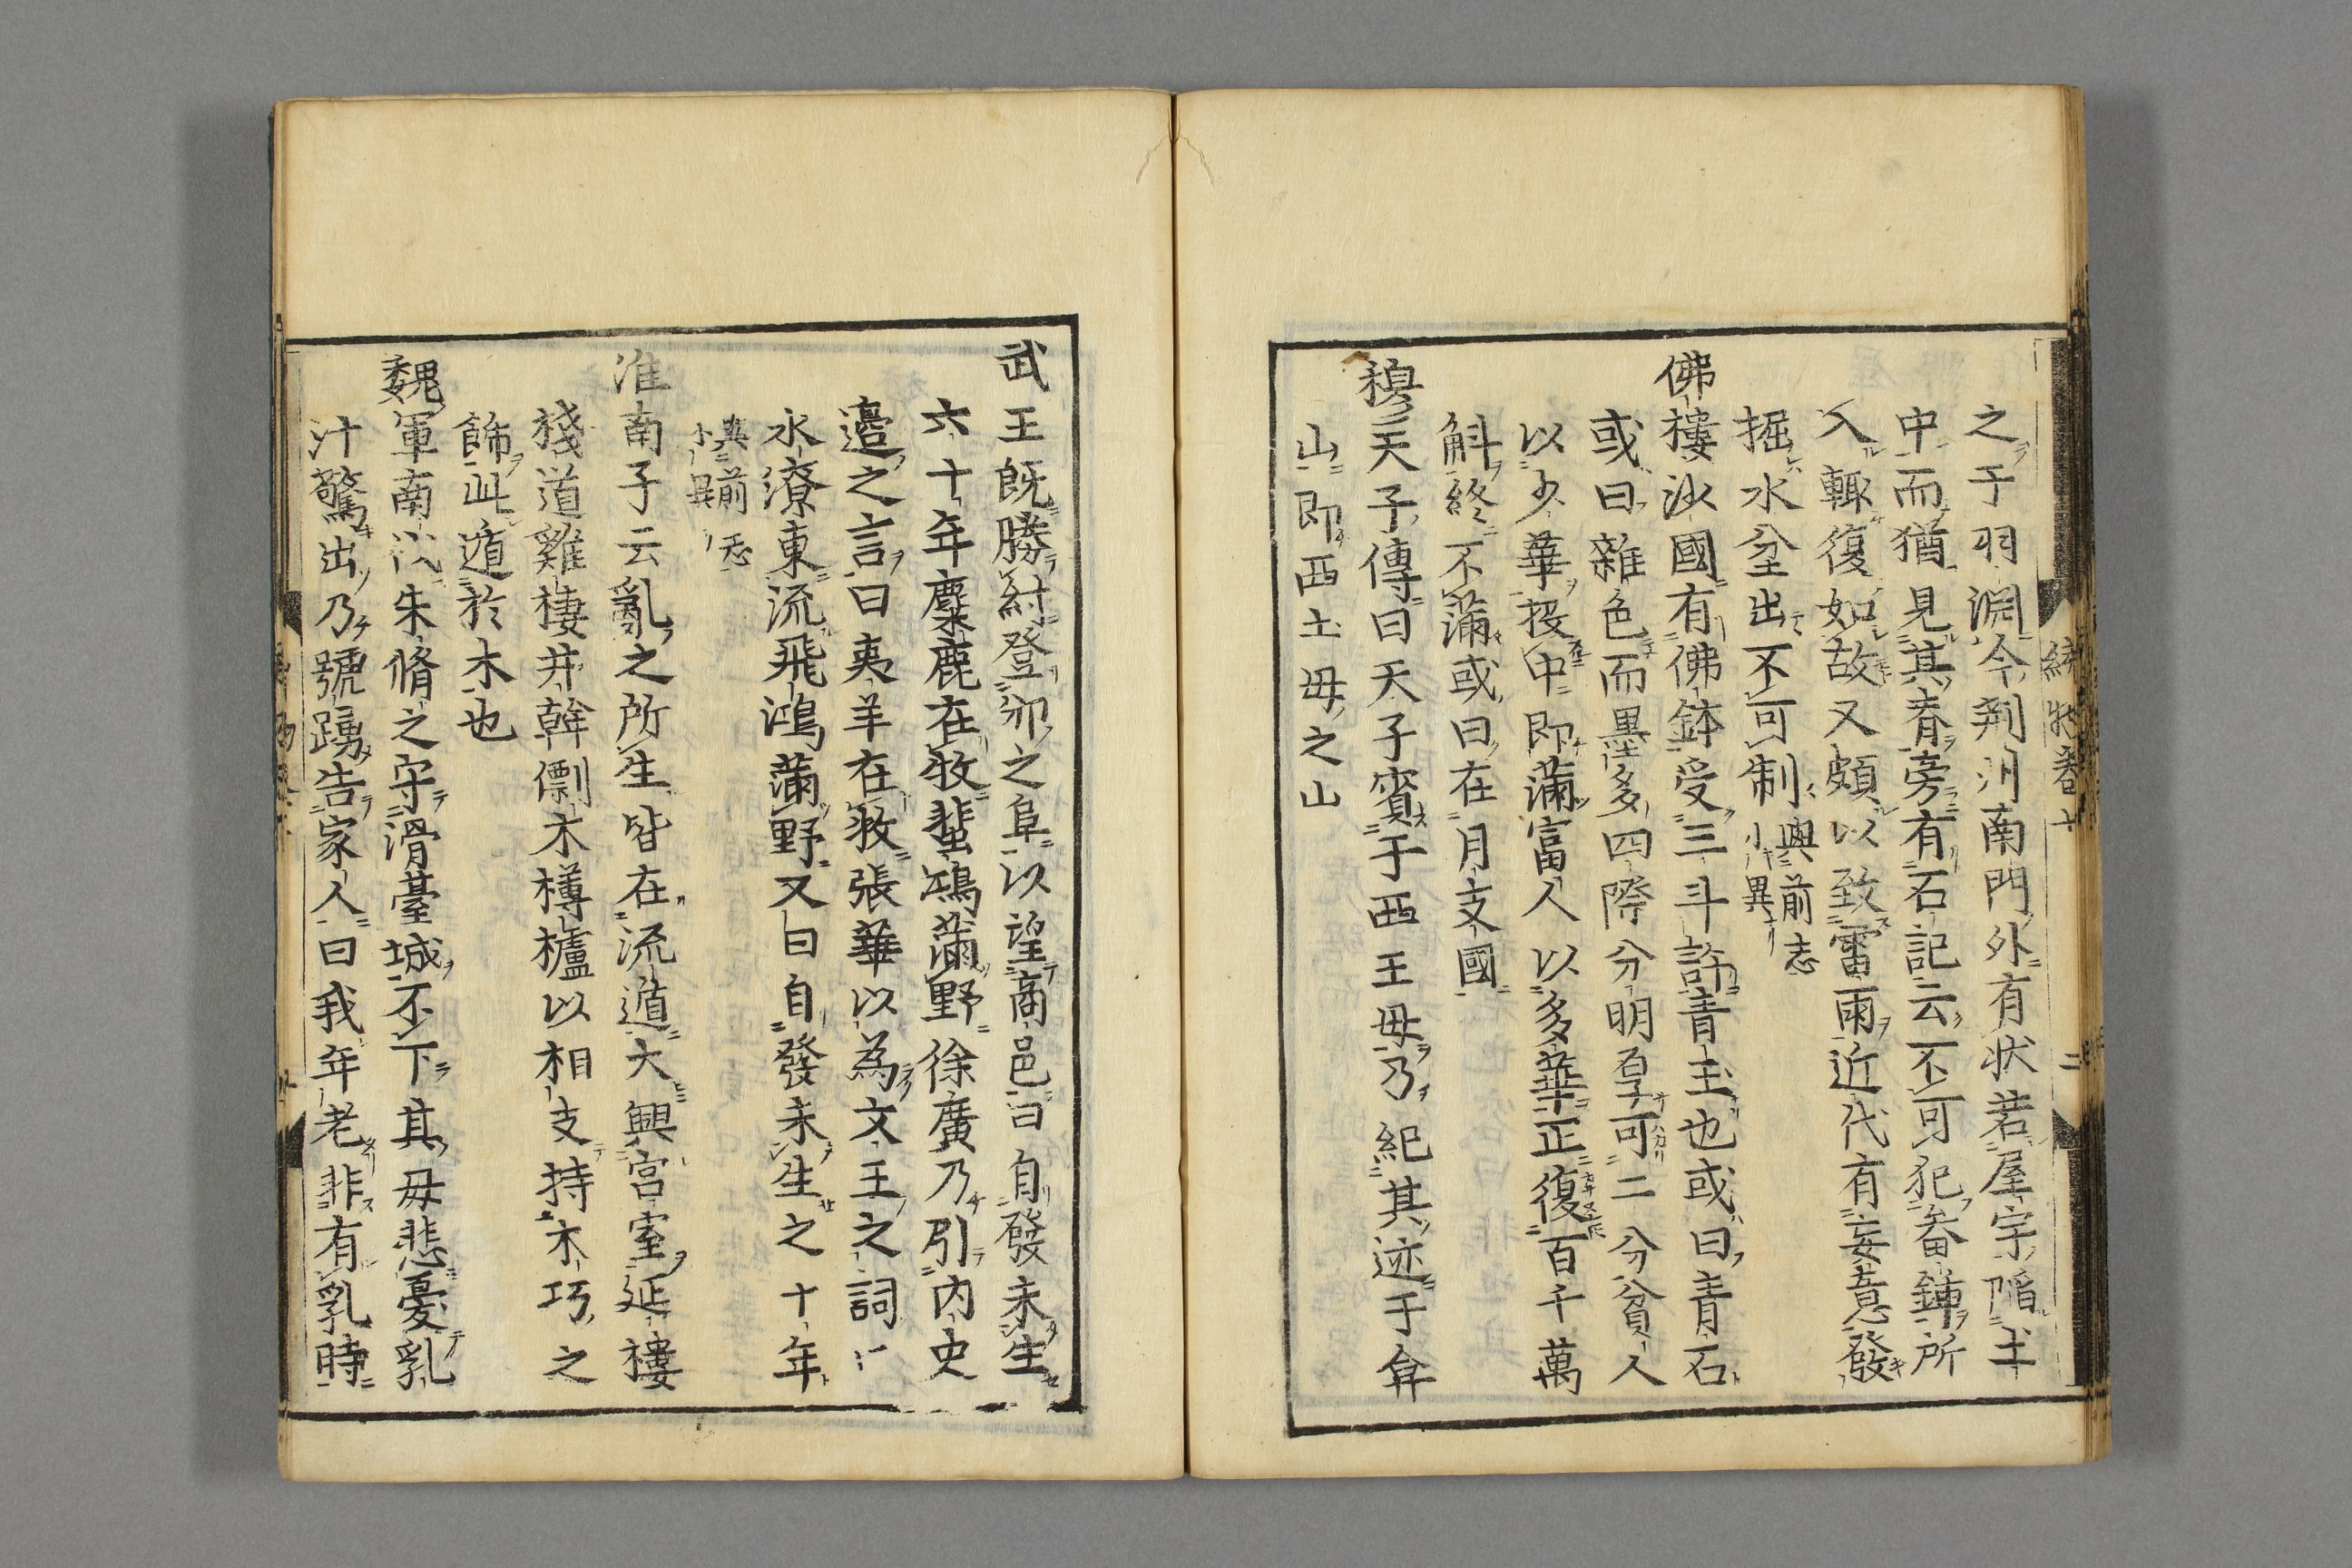 之于羽淵今荆州南門外有狀若屋宇陷土
中而猶見其脊旁有石記云不可犯畚鍤所
入輙復如故又頗以致雷雨近代有妄意發
掘水坌出不可制與前志小異
佛樓沙國有佛鉢受三斗許青玉也或曰青石
或曰雜色而墨多四際分明厚可二分貧人
以少華投中即滿富人以多華正復百千萬
斛終不滿或曰在月支國
穆天子傳曰天子賓于西王母乃紀其迹于弇
山即西土母之山
續博物卷十
二
武王既勝紂登邠之阜以望商邑曰自發未生
六十年麋鹿在牧蜚鴻滿野徐廣乃引内史
邉之言曰夷羊在牧張華以為文王之詞
水潦東流飛鴻滿野又曰自發未生之十年
與前志小異
淮南子云亂之所生皆在流遁大興宮室延樓
棧道雞棲井幹僄木樽櫨以相支持木巧之
飾此遁於木也
魏軍南伐朱脩之守滑臺城不下其毋悲憂乳
汁驚出乃號踴告家人曰我年老非有乳時